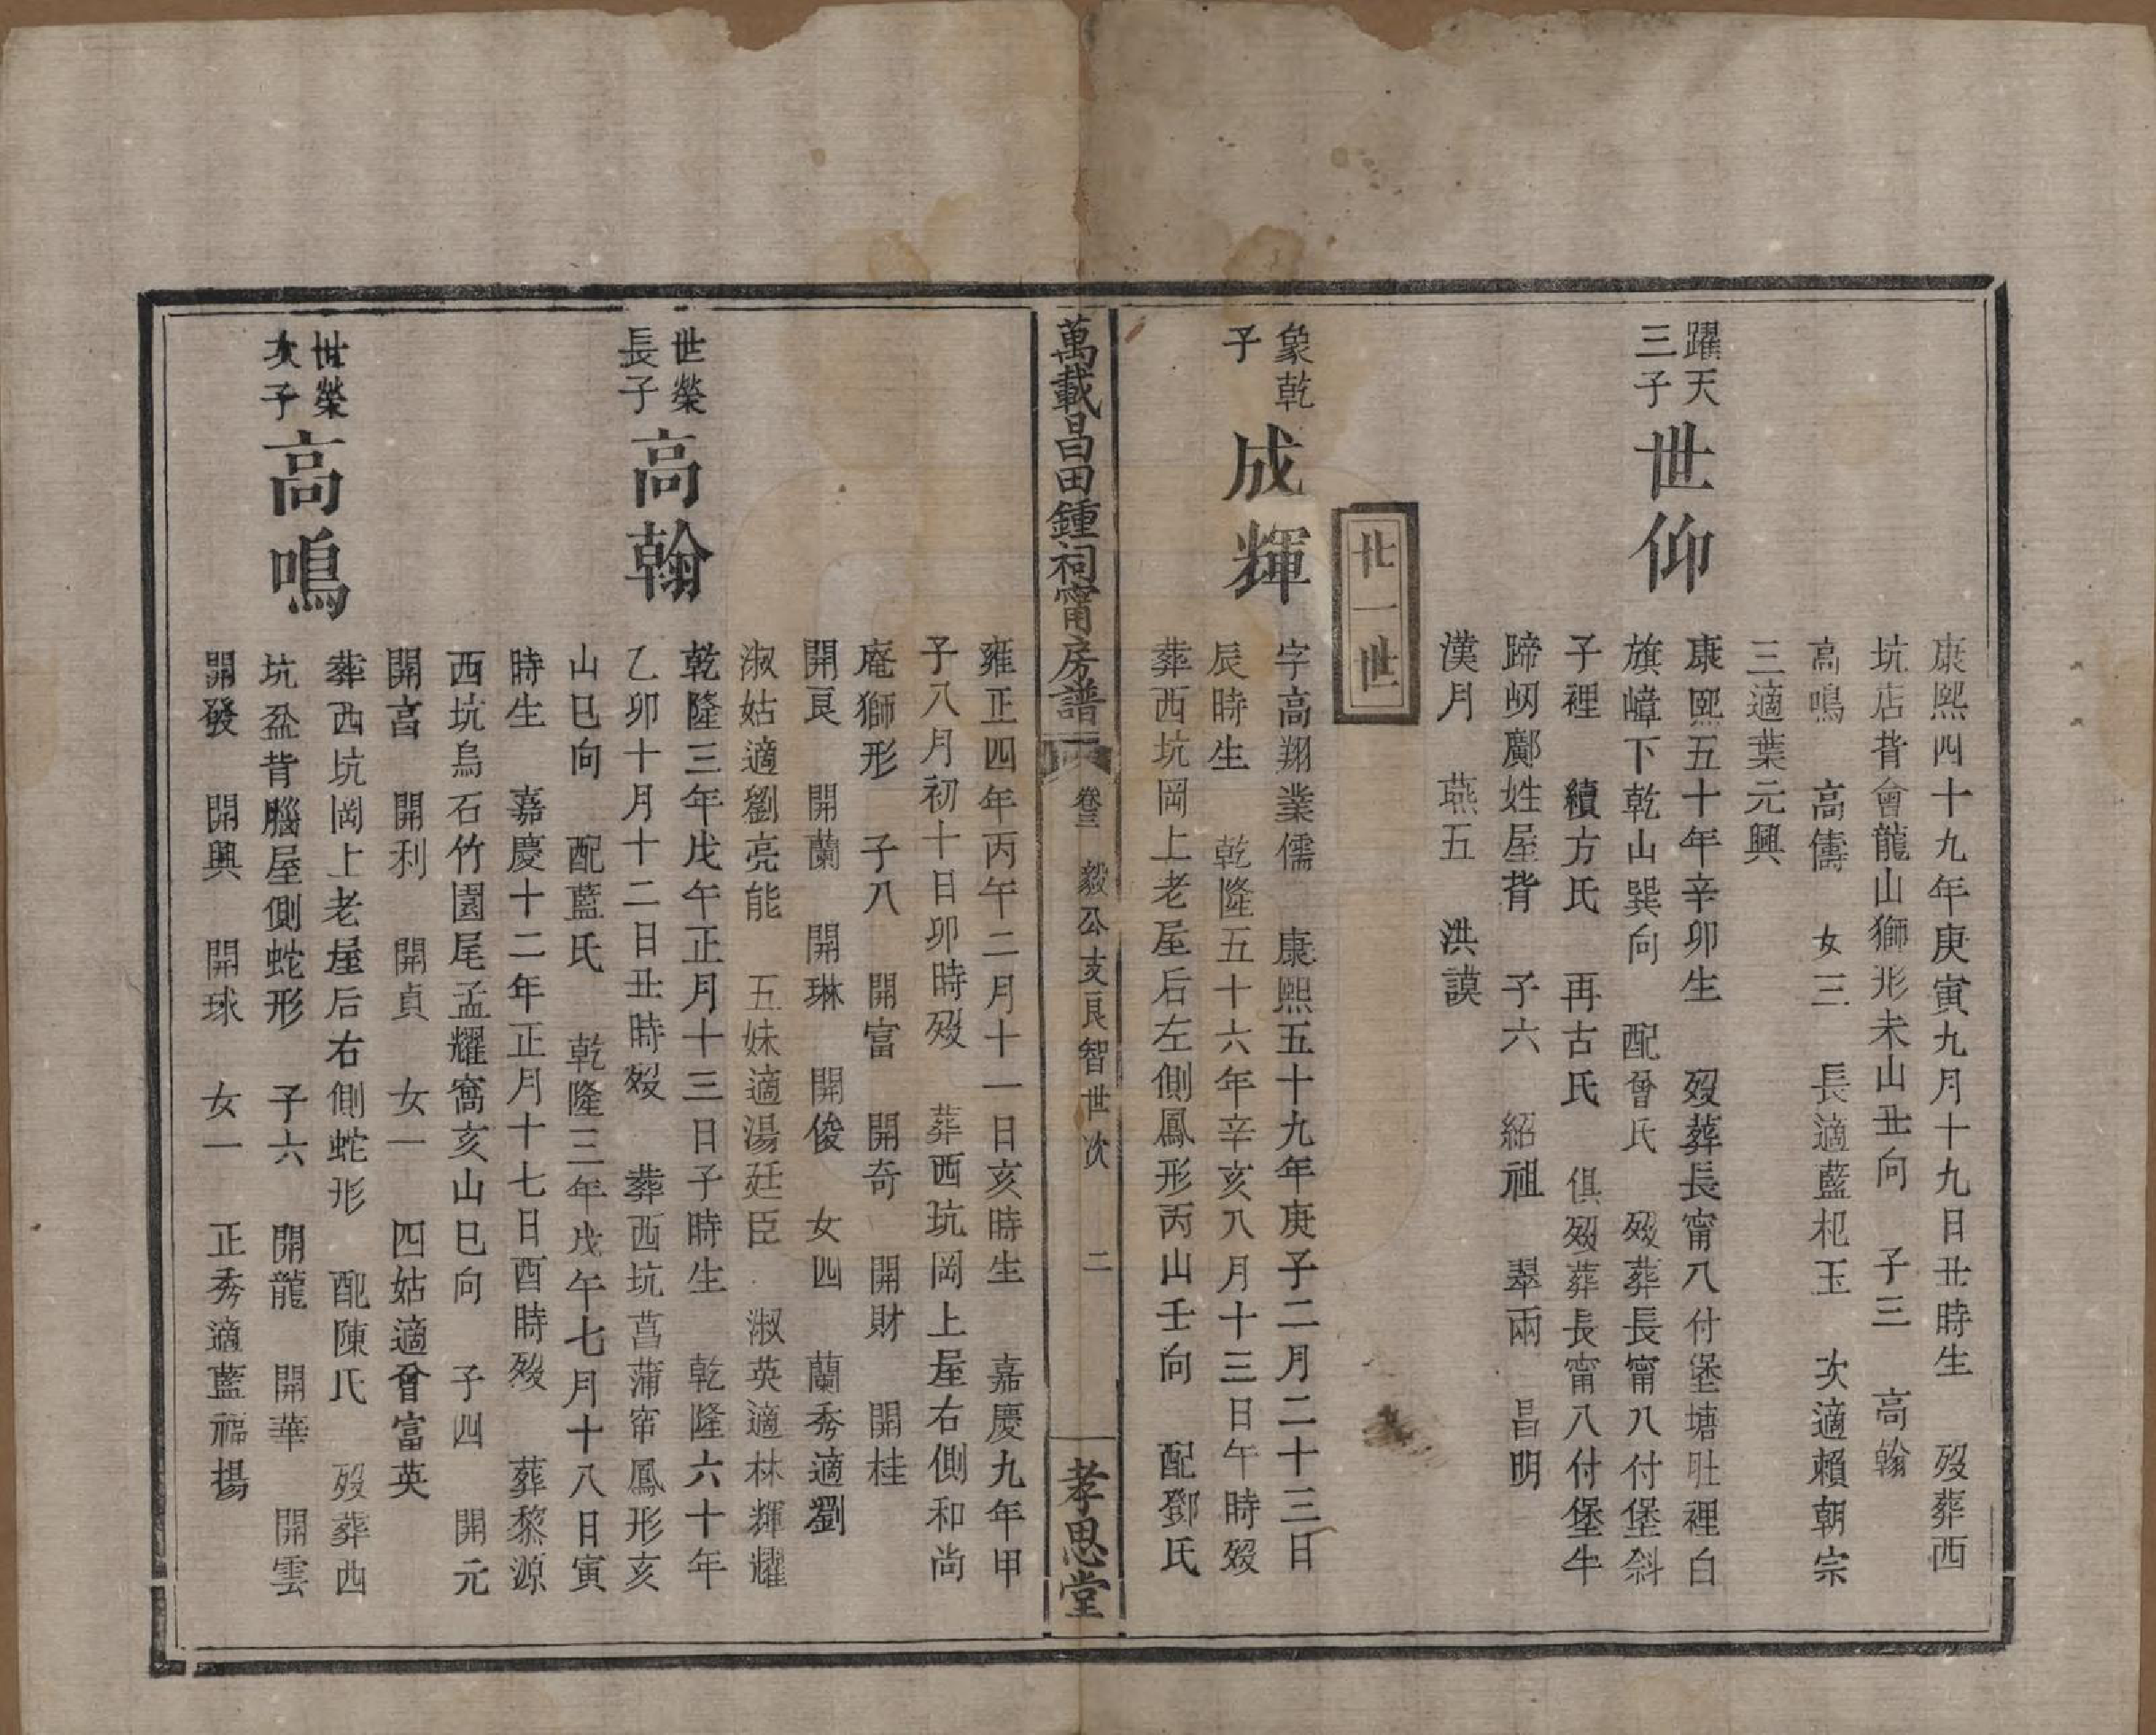 康熙四十九年庚寅九月十九日丑時生　歿葬西
坑店背會龍山獅形未山丑向　子三　高翰
高鳴　高儔　女三　長適藍杞玉　次適賴朝宗
三適葉元興
躍天三子　世仰　康熙五十年辛卯生　歿葬長甯八付堡塘肚裡白
旗嶂下乾山巽向　配曾氏　歿葬長甯八付堡斜
子裡　續方氏　再古氏　俱歿葬長甯八付堡牛
蹄㘭鄺姓屋背　子六　紹祖　翠兩　昌明
漢月　燕五　洪謨
廿一世
象乾子　成輝　字高翔業儒　康熙五十九年庚子二月二十三日
辰時生　乾隆五十六年辛亥八月十三日午時歿
葬西坑岡上老屋后左側鳳形丙山壬向　配鄧氏
萬載昌田鍾祠甯房譜　卷三　毅公支良智世次　二　孝思堂
雍正四年丙午二月十一日亥時生　嘉慶九年甲
子八月初十日卯時歿　葬西坑岡上屋右側和尚
庵獅形　子八　開富　開奇　開財　開桂
開良　開蘭　開琳　開俊　女四　蘭秀適劉
淑姑適劉亮能　五妹適湯廷臣　淑英適林輝耀
世榮長子　高翰　乾隆三年戊午正月十三日子時生　乾隆六十年
乙卯十月十二日丑時歿　葬西坑菖蒲帘鳳形亥
山巳向　配藍氏　乾隆三年戊午七月十八日寅
時生　嘉慶十二年正月十七日酉時歿　葬黎源
西坑烏石竹園尾孟耀窩亥山巳向　子四　開元
開富　開利　開貞　女一　四姑適曾富英
世榮次子　高鳴　葬西坑岡上老屋后右側蛇形　配陳氏　歿葬西
坑盆背腦屋側蛇形　子六　開龍　開華　開雲
開發　開興　開球　女一　正秀適藍福揚